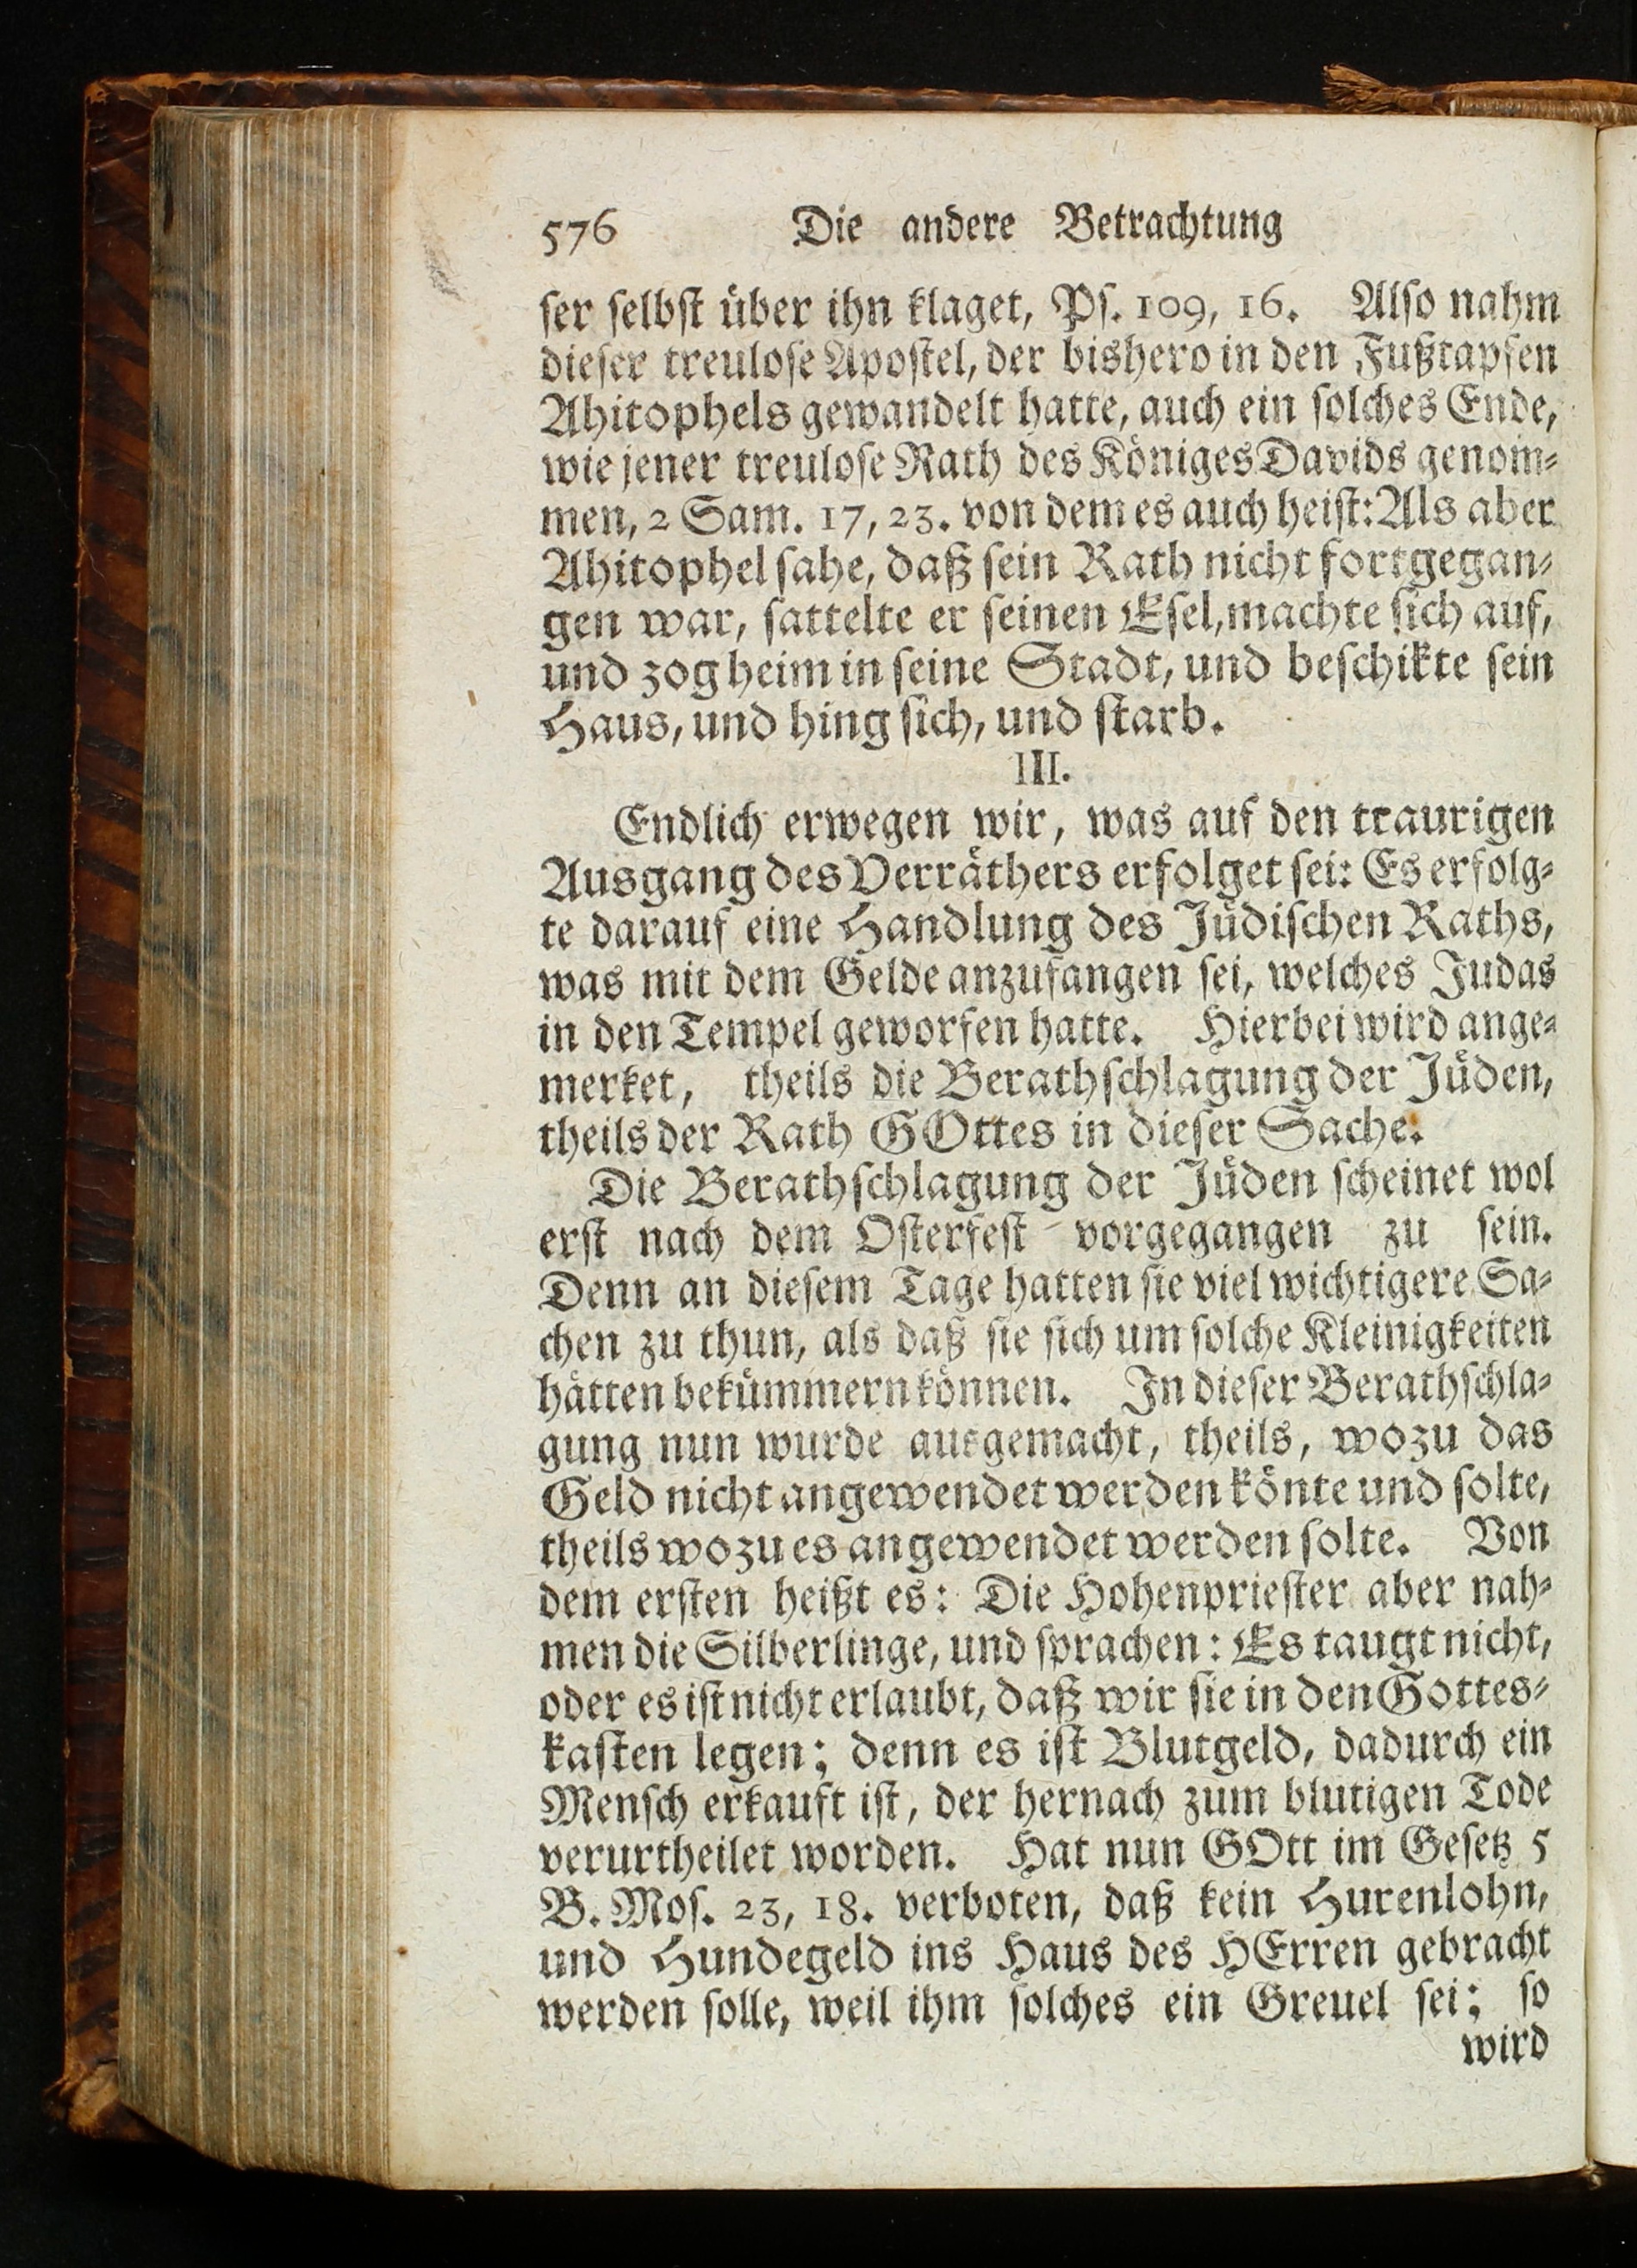 576 Die andere Betrachtung
ſer ſelbſt uͤber ihn klaget, Pſ. 109, 16. Alſo nahm
dieſer treuloſe Apoſtel, der bishero in den Fußtapfen
Ahitophels gewandelt hatte, auch ein ſolches Ende,
wie jener treuloſe Rath des Koͤniges Davids genom⸗
men, 2 Sam. 17, 23. von dem es auch heiſt: Als aber
Ahitophel ſahe, daß ſein Rath nicht fortgegan⸗
gen war, ſattelte er ſeinen Eſel, machte ſich auf,
und zog heim in ſeine Stadt, und beſchikte ſein
Haus, und hing ſich, und ſtarb.
III.
Endlich erwegen wir, was auf den traurigen
Ausgang des Verraͤthers erfolget ſei: Es erfolg⸗
te darauf eine Handlung des Juͤdiſchen Raths,
was mit dem Gelde anzufangen ſei, welches Judas
in den Tempel geworfen hatte. Hierbei wird ange⸗
merket, theils die Berathſchlagung der Juͤden,
theils der Rath GOttes in dieſer Sache.
Die Berathſchlagung der Juͤden ſcheinet wol
erſt nach dem Oſterfeſt vorgegangen zu ſein.
Denn an dieſem Tage hatten ſie viel wichtigere Sa⸗
chen zu thun, als daß ſie ſich um ſolche Kleinigkeiten
haͤtten bekuͤmmern koͤnnen. In dieſer Berathſchla⸗
gung nun wurde ausgemacht, theils, wozu das
Geld nicht angewendet werden koͤnte und ſolte,
theils wozu es angewendet werden ſolte. Von
dem erſten heißt es: Die Hohenprieſter aber nah⸗
men die Silberlinge, und ſprachen: Es taugt nicht,
oder es iſt nicht erlaubt, daß wir ſie in den Gottes⸗
kaſten legen; denn es iſt Blutgeld, dadurch ein
Menſch erkauft iſt, der hernach zum blutigen Tode
verurtheilet worden. Hat nun GOtt im Geſetz 5
B. Moſ. 23, 18. verboten, daß kein Hurenlohn,
und Hundegeld ins Haus des HErren gebracht
werden ſolle, weil ihm ſolches ein Greuel ſei; ſo
wird